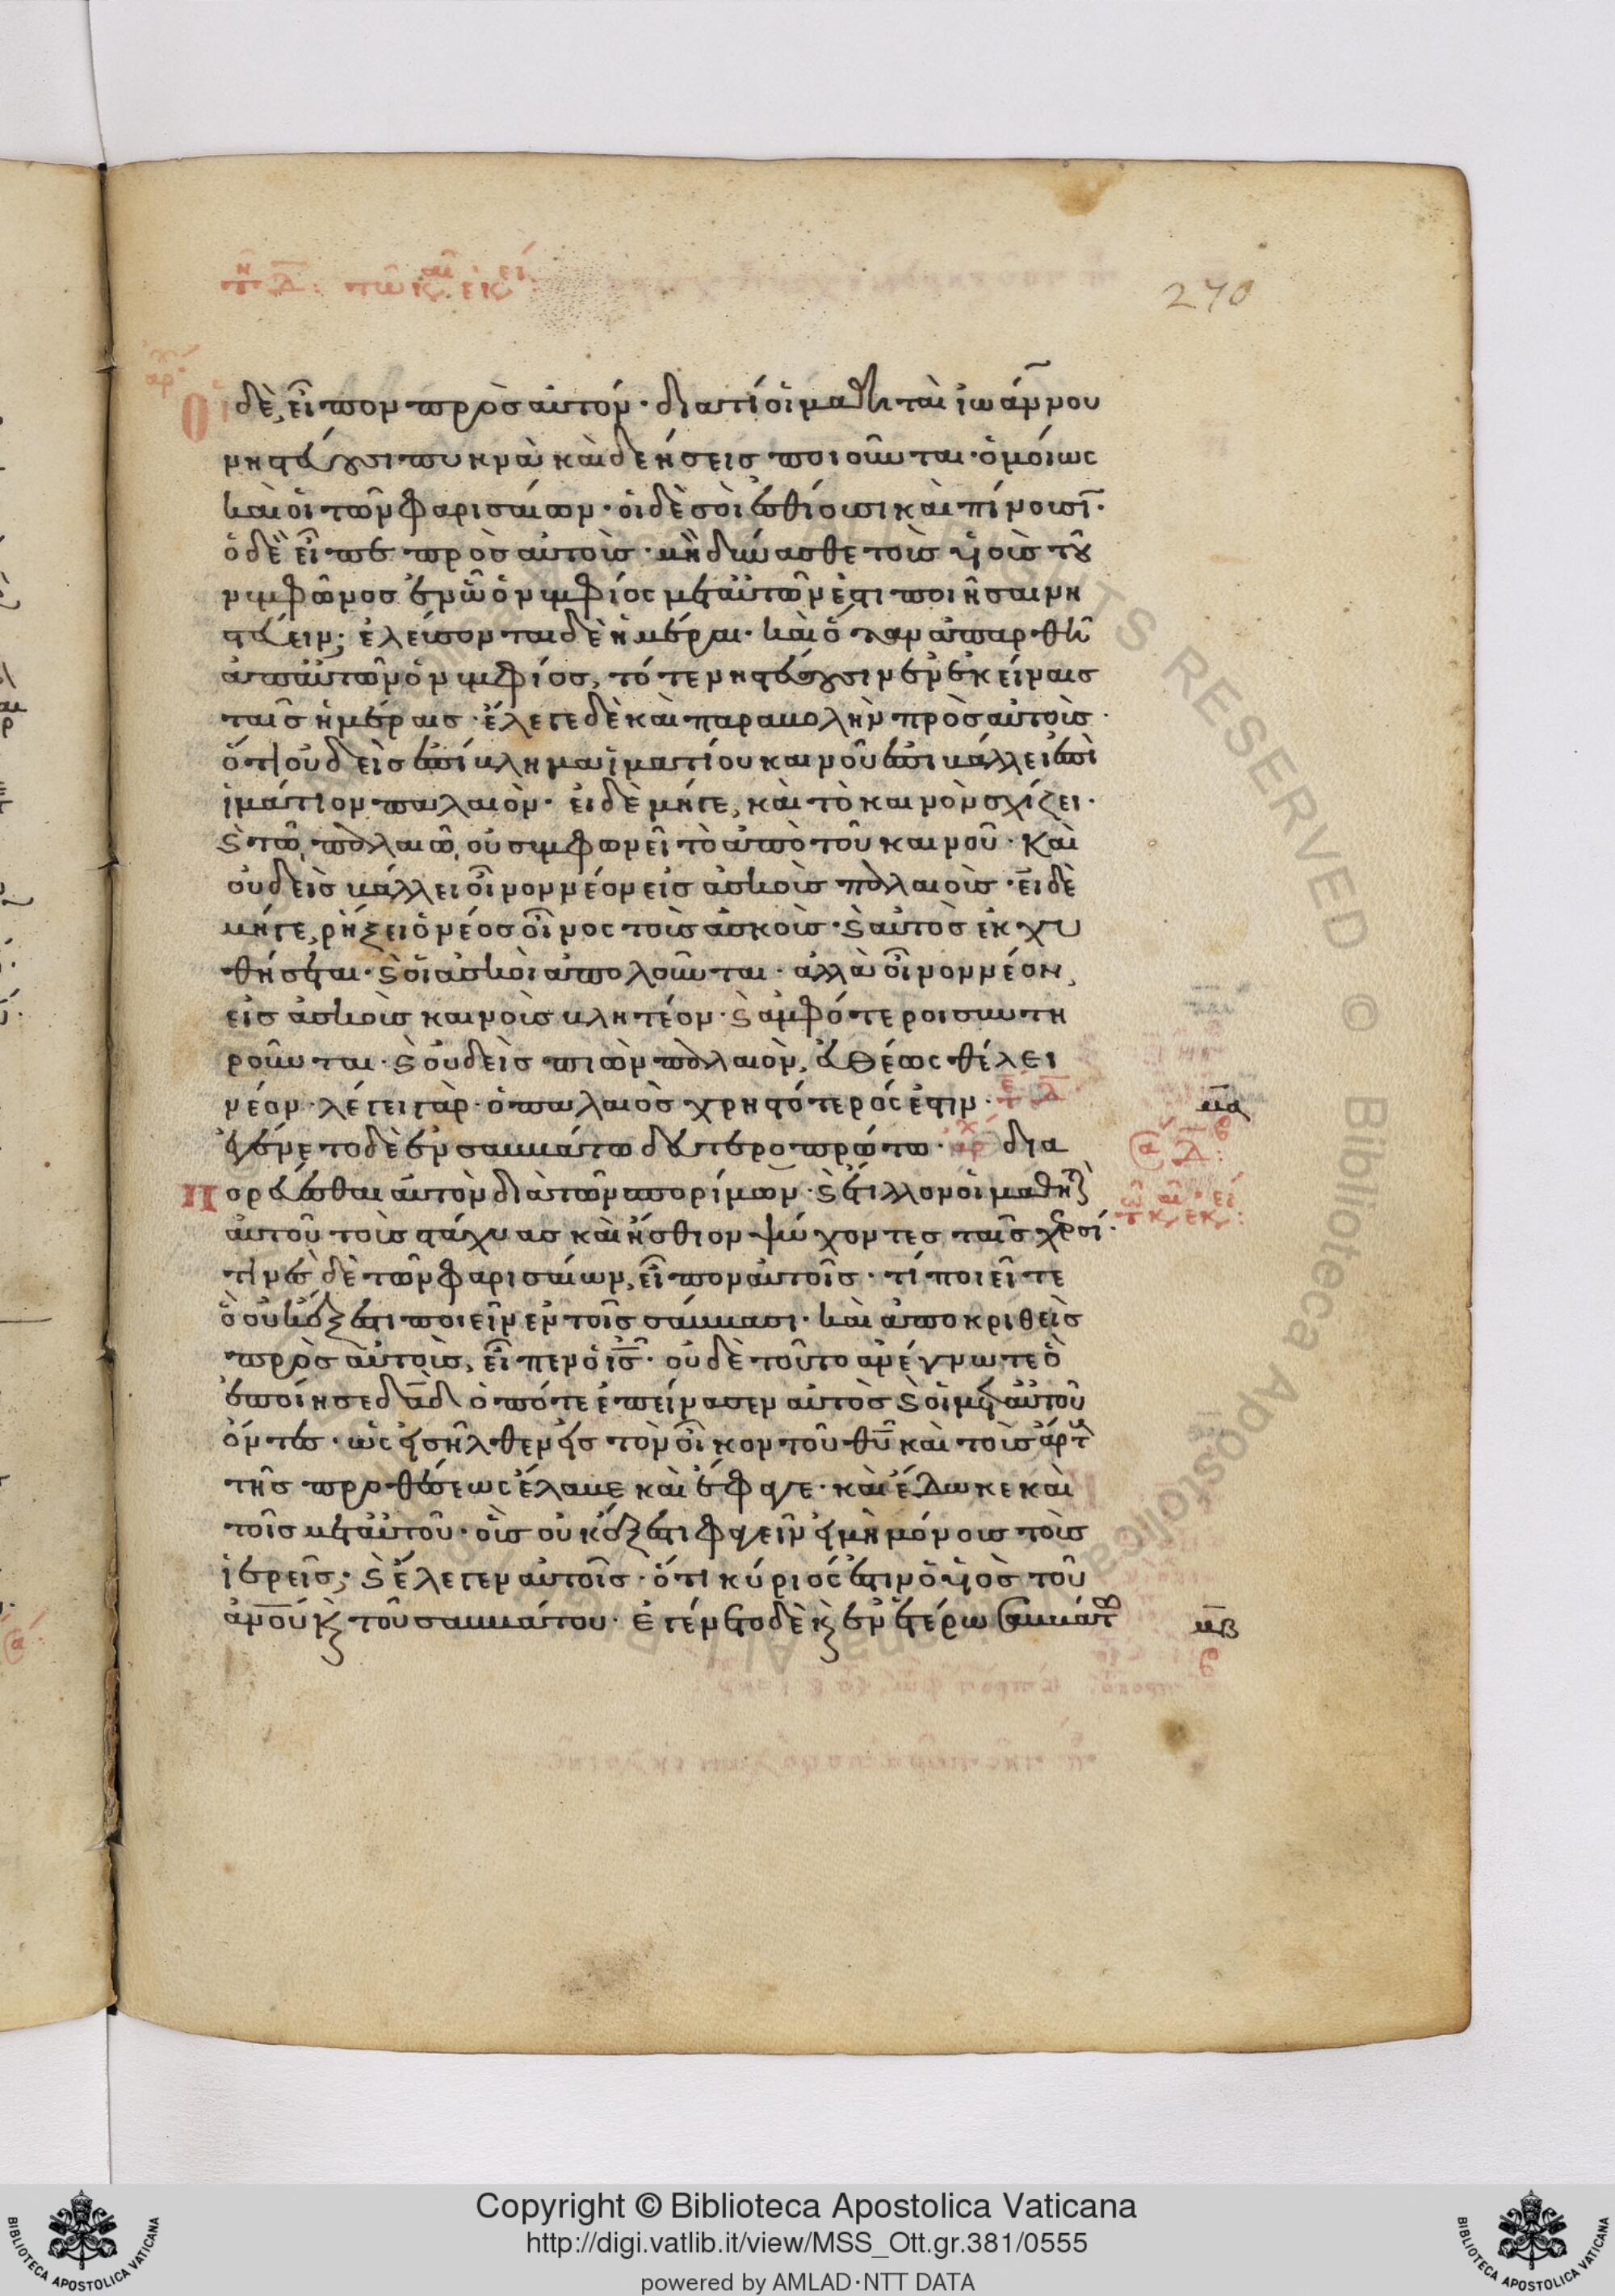 270
Οἱ δὲ εἶπον πρὸς αὐτόν· διατί οἱ μαθηταὶ ἰωάννου
νηστεύουσι πυκνὰ καὶ δεήσεις ποιοῦνται· ὁμοίως
καὶ οἱ τῶν φαρισαίων· οἱ δὲ σοὶ ἐσθίουσι καὶ πίνουσῑ·
ὁ δὲ εἶπε πρὸς αὐτοὺς· μὴ δύνασθε τοὺς υἱοὺς τοῦ
νυμφῶνος ἐν ὧ ὁ νυμφίος μετ αὐτῶν ἐστι ποιῆσαι νη
στεύειν; ἐλεύσονται δὲ ἡμέραι· καὶ ὅταν ἀπαρθῆ
ἀπ αὐτῶν ὁ νυμφίος, τότε νηστεύουσιν ἐν ἐκείναις
ταῖς ἡμέραις· ἔλεγε δὲ καὶ παραβολὴν πρὸς αὐτοὺς·
ὅτι οὐδεὶς ἐπίβλημα ἱματίου καινοῦ ἐπιβάλλει ἐπὶ
ἱμάτιον παλαιὸν· εἰ δὲ μήγε, καὶ τὸ καινὸν σχίζει·
ϗ τῶ παλαιῶ, οὐ συμφωνεῖ τὸ ἀπὸ τοῦ καινοῦ· Καὶ
οὐδεὶς βάλλει οἶνον νέον εἰς ἀσκοὺς παλαιοὺς· εἰ δὲ
μήγε, ῥήξει ὁ νέος οἶνος τοὺς ἀσκοὺς· ϗ αὐτὸς ἐκχυ
θήσεται· ϗ οἱ ἀσκοὶ ἀπολοῦνται· ἀλλὰ οἶνον νέον,
εἰς ἀσκοὺς καινοὺς βλητέον· ϗ ἀμφότεροι συντη
ροῦνται· ϗ οὐδεὶς πιὼν παλαιὸν, εὐθέως θέλει
νέον· λέγει γὰρ· ὁ παλαιὸς χρηστότερός ἐστιν·
ἐγένετο δὲ ἐν σαββάτω δευτεροπρώτω· δια
Πορεύεσθαι αὐτὸν διὰ τῶν σπορίμων· ϗ ἔτιλλον οἱ μαθητ
αὐτοῦ τοὺς στάχυας καὶ ἤσθιον ψώχοντες ταῖς χερσί·
τινὲς δὲ τῶν φαρισαίων, εἶπον αὐτοῖς· τί ποιεῖτε
ὃ οὐκ ἔξεστι ποιεῖν ἐν τοῖς σάββασι· καὶ ἀποκριθεὶς
πρὸς αὐτοὺς, εἶπεν ὁ ῑς̄· οὐδὲ τοῦτο ἀνέγνωτε ὃ
ἐποίησε δᾱδ ὁπότε ἐπείνασεν αὐτὸς ϗ οἱ μετ αὐτοῦ
ὄντες· ὡς εἰσῆλθεν εἰς τὸν οἶκον τοῦ θῡ καὶ τοὺς ἄρτ
τῆς προθέσεως ἔλαβε καὶ ἔφαγε· καὶ ἔδωκε καὶ
τοῖς μετ αὐτοῦ· οὓς οὐκ ἔξεστι φαγεῖν εἰ μὴ μόνους τοὺς
ἱερεῖς; ϗ ἔλεγεν αὐτοῖς· ὅτι κύριός ἐστιν ὁ υἱὸς τοῦ
ἀν̄ου καὶ τοῦ σαββάτου· Ἐγένετο δὲ καὶ ἐν ἑτέρω σαββάτ
μα
μβ
Copyright © Biblioteca Apostolica Vaticana
http://digi.vatlib.it/view/MSS_Ott.gr.381/0555
powered by AMLAD·NTT DATA
BIBLIOTECA APOSTOLICA VATICANA
BIBLIOTECA APOSTOLICA VATICANA